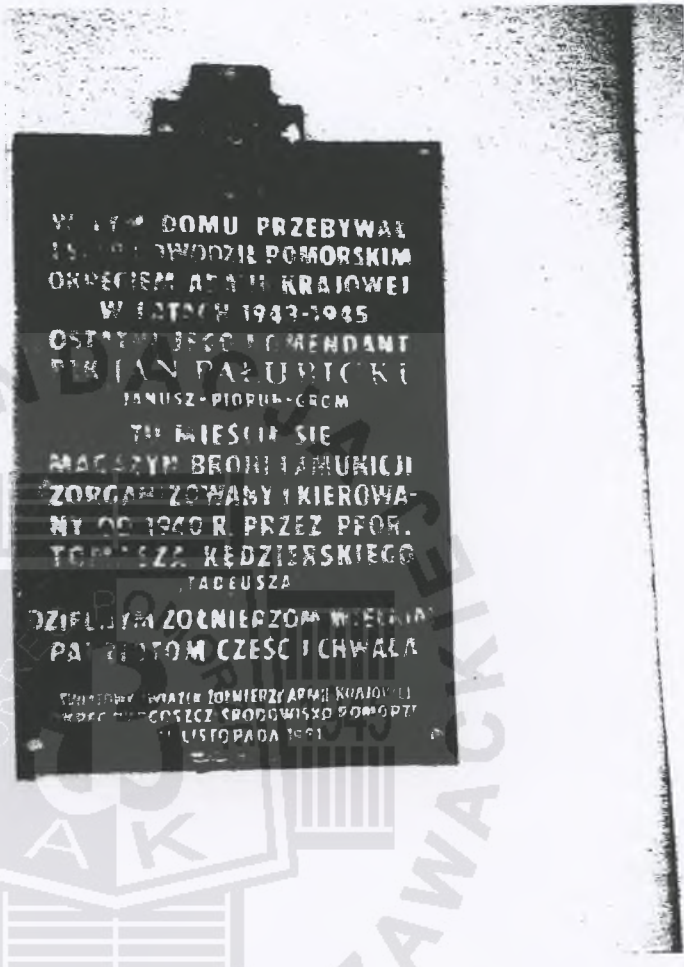 W TYM DOMU PRZEBYWAŁ
DOWODZIŁ POMORSKIM
OKRĘGIEM ARMII KRAJOWEJ
W LATACH 1943-1945
OSTATNI JEGO KOMENDANT
PŁK JAN PAŁUBICKI
JANUSZ-PIORUN-GROM
TU MIEŚCIŁ SIĘ
MAGAZYN BRONI I AMUNICJI
ZORGANIZOWANY I KIEROWA-
NY OD 1940 R. PRZEZ PPOR.
TOMASZA KĘDZIERSKIEGO
TADEUSZA
DZIELNYM ŻOŁNIERZOM WIELKIM
PATRIOTOM CZEŚĆ I CHWAŁA
ŚWIATOWY ZWIĄZEK ŻOŁNIERZY ARMII KRAJOWEJ
OKRĘG BYDGOSZCZ ŚRODOWISKO POMORZE
11 LISTOPADA 1991
AK
1945